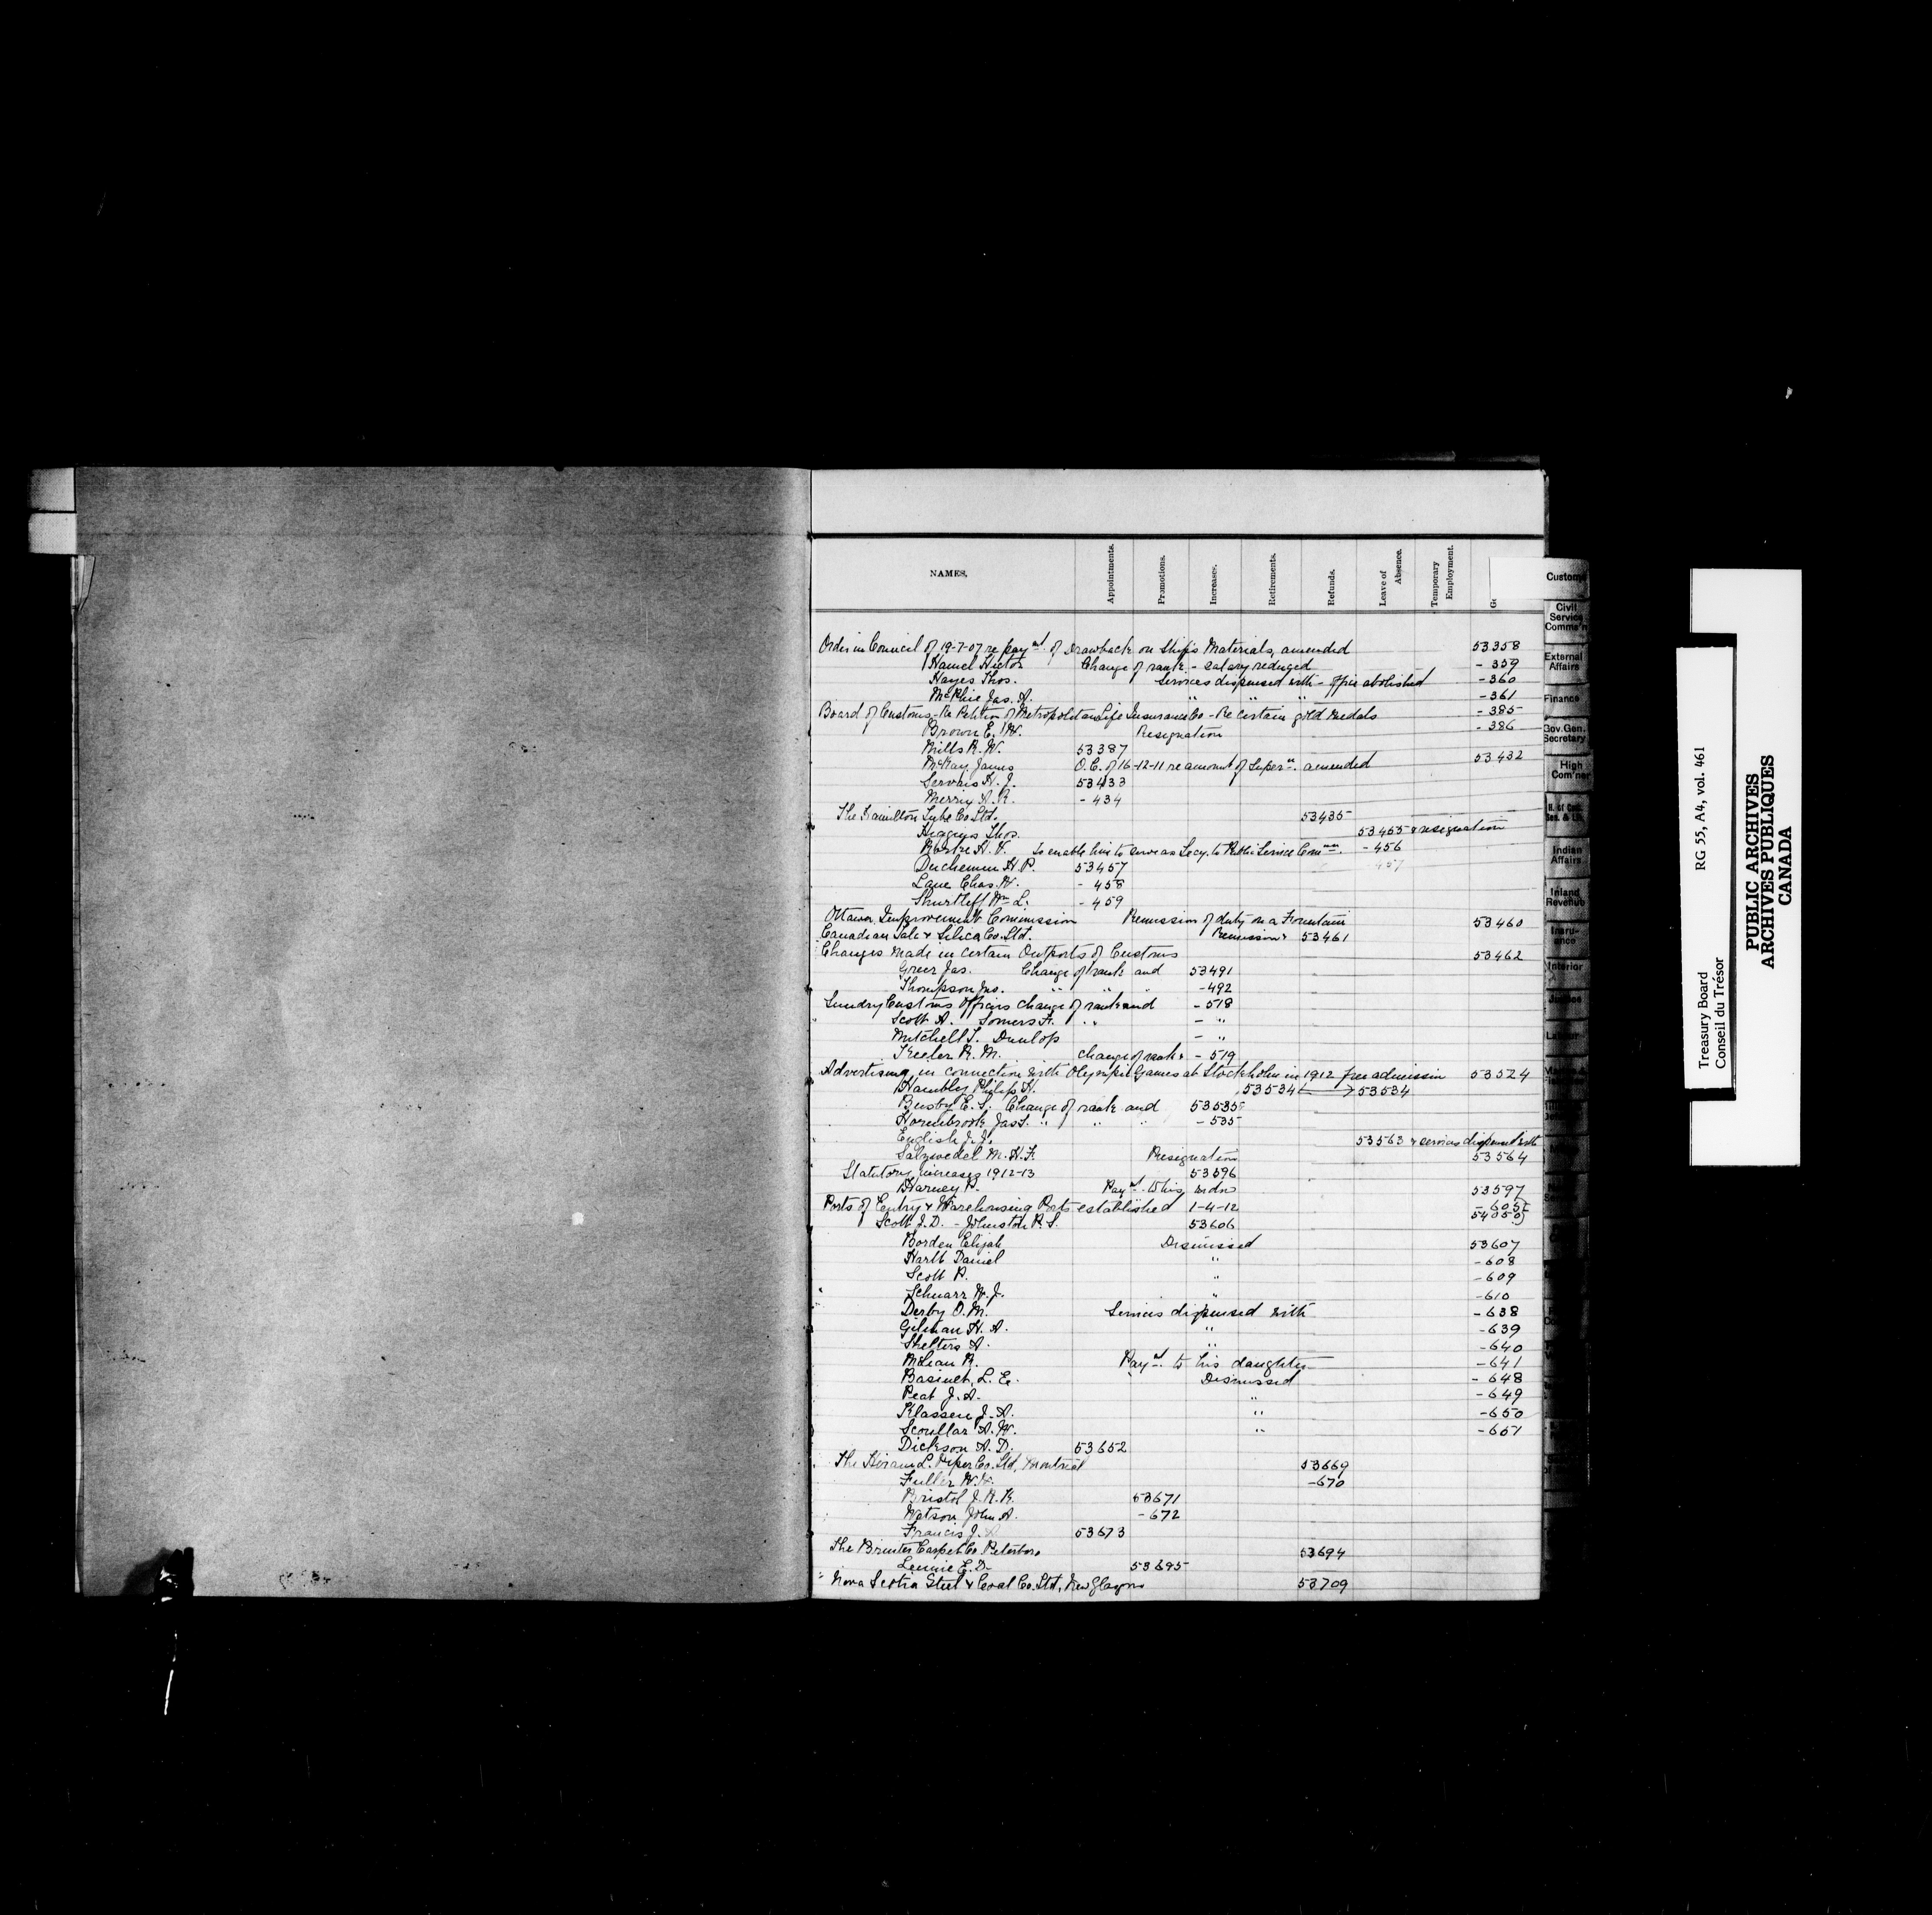 NAMES.
Appointments.
Promotions.
Increases.
Retirements.
Refunds.
Leave of Absence.
Temporary Employment.
Ge
Order in Council of 19-7-07 re paymt. of Drawback on Ship's Materials, amended 53358
Hamel Hector Change of rank - salary reduced - 359
Hayes Thos. Services dispensed with - office abolished - 360
McPhie Jas. A. " " " - 361
Board of Customs - Re Petition of Metropolitan Life Insurance Co - Re certain gold medals - 385
Brown E. W. Resignation - 386
Mills R. W. 53387
McKay James O.C. of 16-12-11 re amount of Super n. amended 53432
Servais H. J. 53433
Merry A. R. - 434
The Hamilton Tube Co Ltd. 53435
Higgins Thos. 53455 & resignation
H. V. to enable him to serve as Secy. to Public Service Comn. - 456
Duchemin H. P. 53457 457
Lane Chas. W. - 458
Shurtleff Wm L. - 459
Ottawa Improvement Commission Remission of duty on a Fountain 53460
Canadian Salt & Silica Co. Ltd. Remission & 53461
Changes made in certain Outports of Customs 53462
Greer Jas. Change of rank and 53491
Thompson Jno. " " " - 492
Sundry Customs Officers change of rank and - 518
Scott A. Somers F. " " - "
Mitchell T. Dunlop - "
Keeler R. M. change of rank & - 519
Advertising in connection with Olympic Games at Stockholm in 1912 free admission 53524
Hambly Philip H. 53534 53534
Busby E. S. Change of rank and 53535
Hornibrook Jas T. " " " - 535
English J. J. 53563 & services dispensed with
Salzwedel M. H. F. Resignation 53564
Statutory increases 1912-13 53596
Harvey P. Paymt. to his widow 53597
Ports of Entry & Warehousing Ports established 1-4-12 - 605
54050
Scott J. D. - Johnston R. S. 53606
Borden Elijah Dismissed 53607
Hartt Daniel " - 608
Scott P. " - 609
Schnarr W. J. " - 610
Derby O. M. Services dispensed with - 638
Gilman H. A. " - 639
Shelters A. " - 640
McLean R. Paymt. to his daughter - 641
Basinet, L. E. Dismissed - 648
Peat J. A. " - 649
Klassen J. A. " - 650
Scoullar A. W. " - 651
Dickson A. D. 53652
The Hiram L. Piper Co. Ltd, Montreal 53669
Fuller W. H. - 670
Bristol J. R. K. 53671
Watson John A. - 672
Francis J. 53673
The Brinton Carpet Co. Peterboro 53694
Lennie E. D. 53695
Nova Scotia Steel & Coal Co. Ltd, New Glasgow 53709
Customs
Civil Service Comms'n
External Affairs
Finance
Gov. Gen. Secretary
High Com'ner
Indian Affairs
Inland Revenue
Insurance
Interior
Justice
Treasury Board RG 55, A4, vol. 461
Conseil du Trésor
PUBLIC ARCHIVES
ARCHIVES PUBLIQUES
CANADA